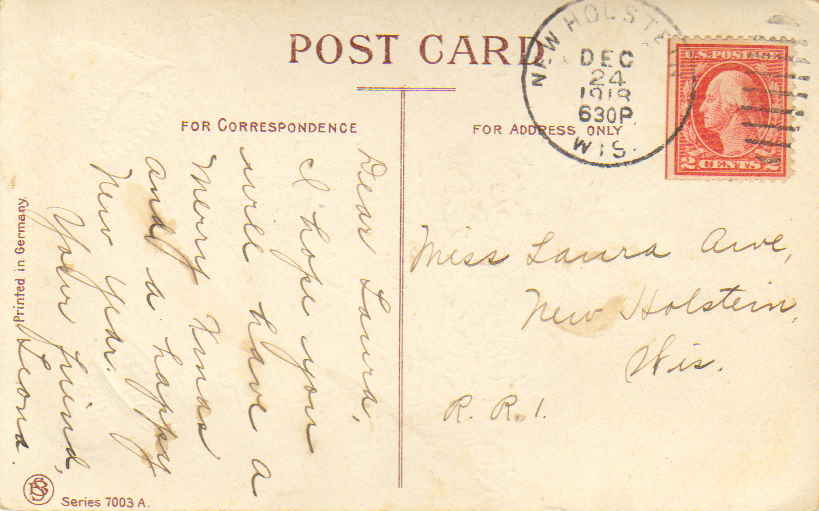 POST CARD
NEW HOLSTEIN
DEC
24
1918
630P.
WIS.
U.S. POSTAGE
2 CENTS 2
FOR CORRESPONDENCE
FOR ADDRESS ONLY
Dear Laura,
I hope you
will have a
Merry Xmas
and a happy
New Year.
Your friend,
Leona.
Miss Laura
New Holstein,
Wis.
R. R. 1.
Printed in Germany
Series 7003 A.